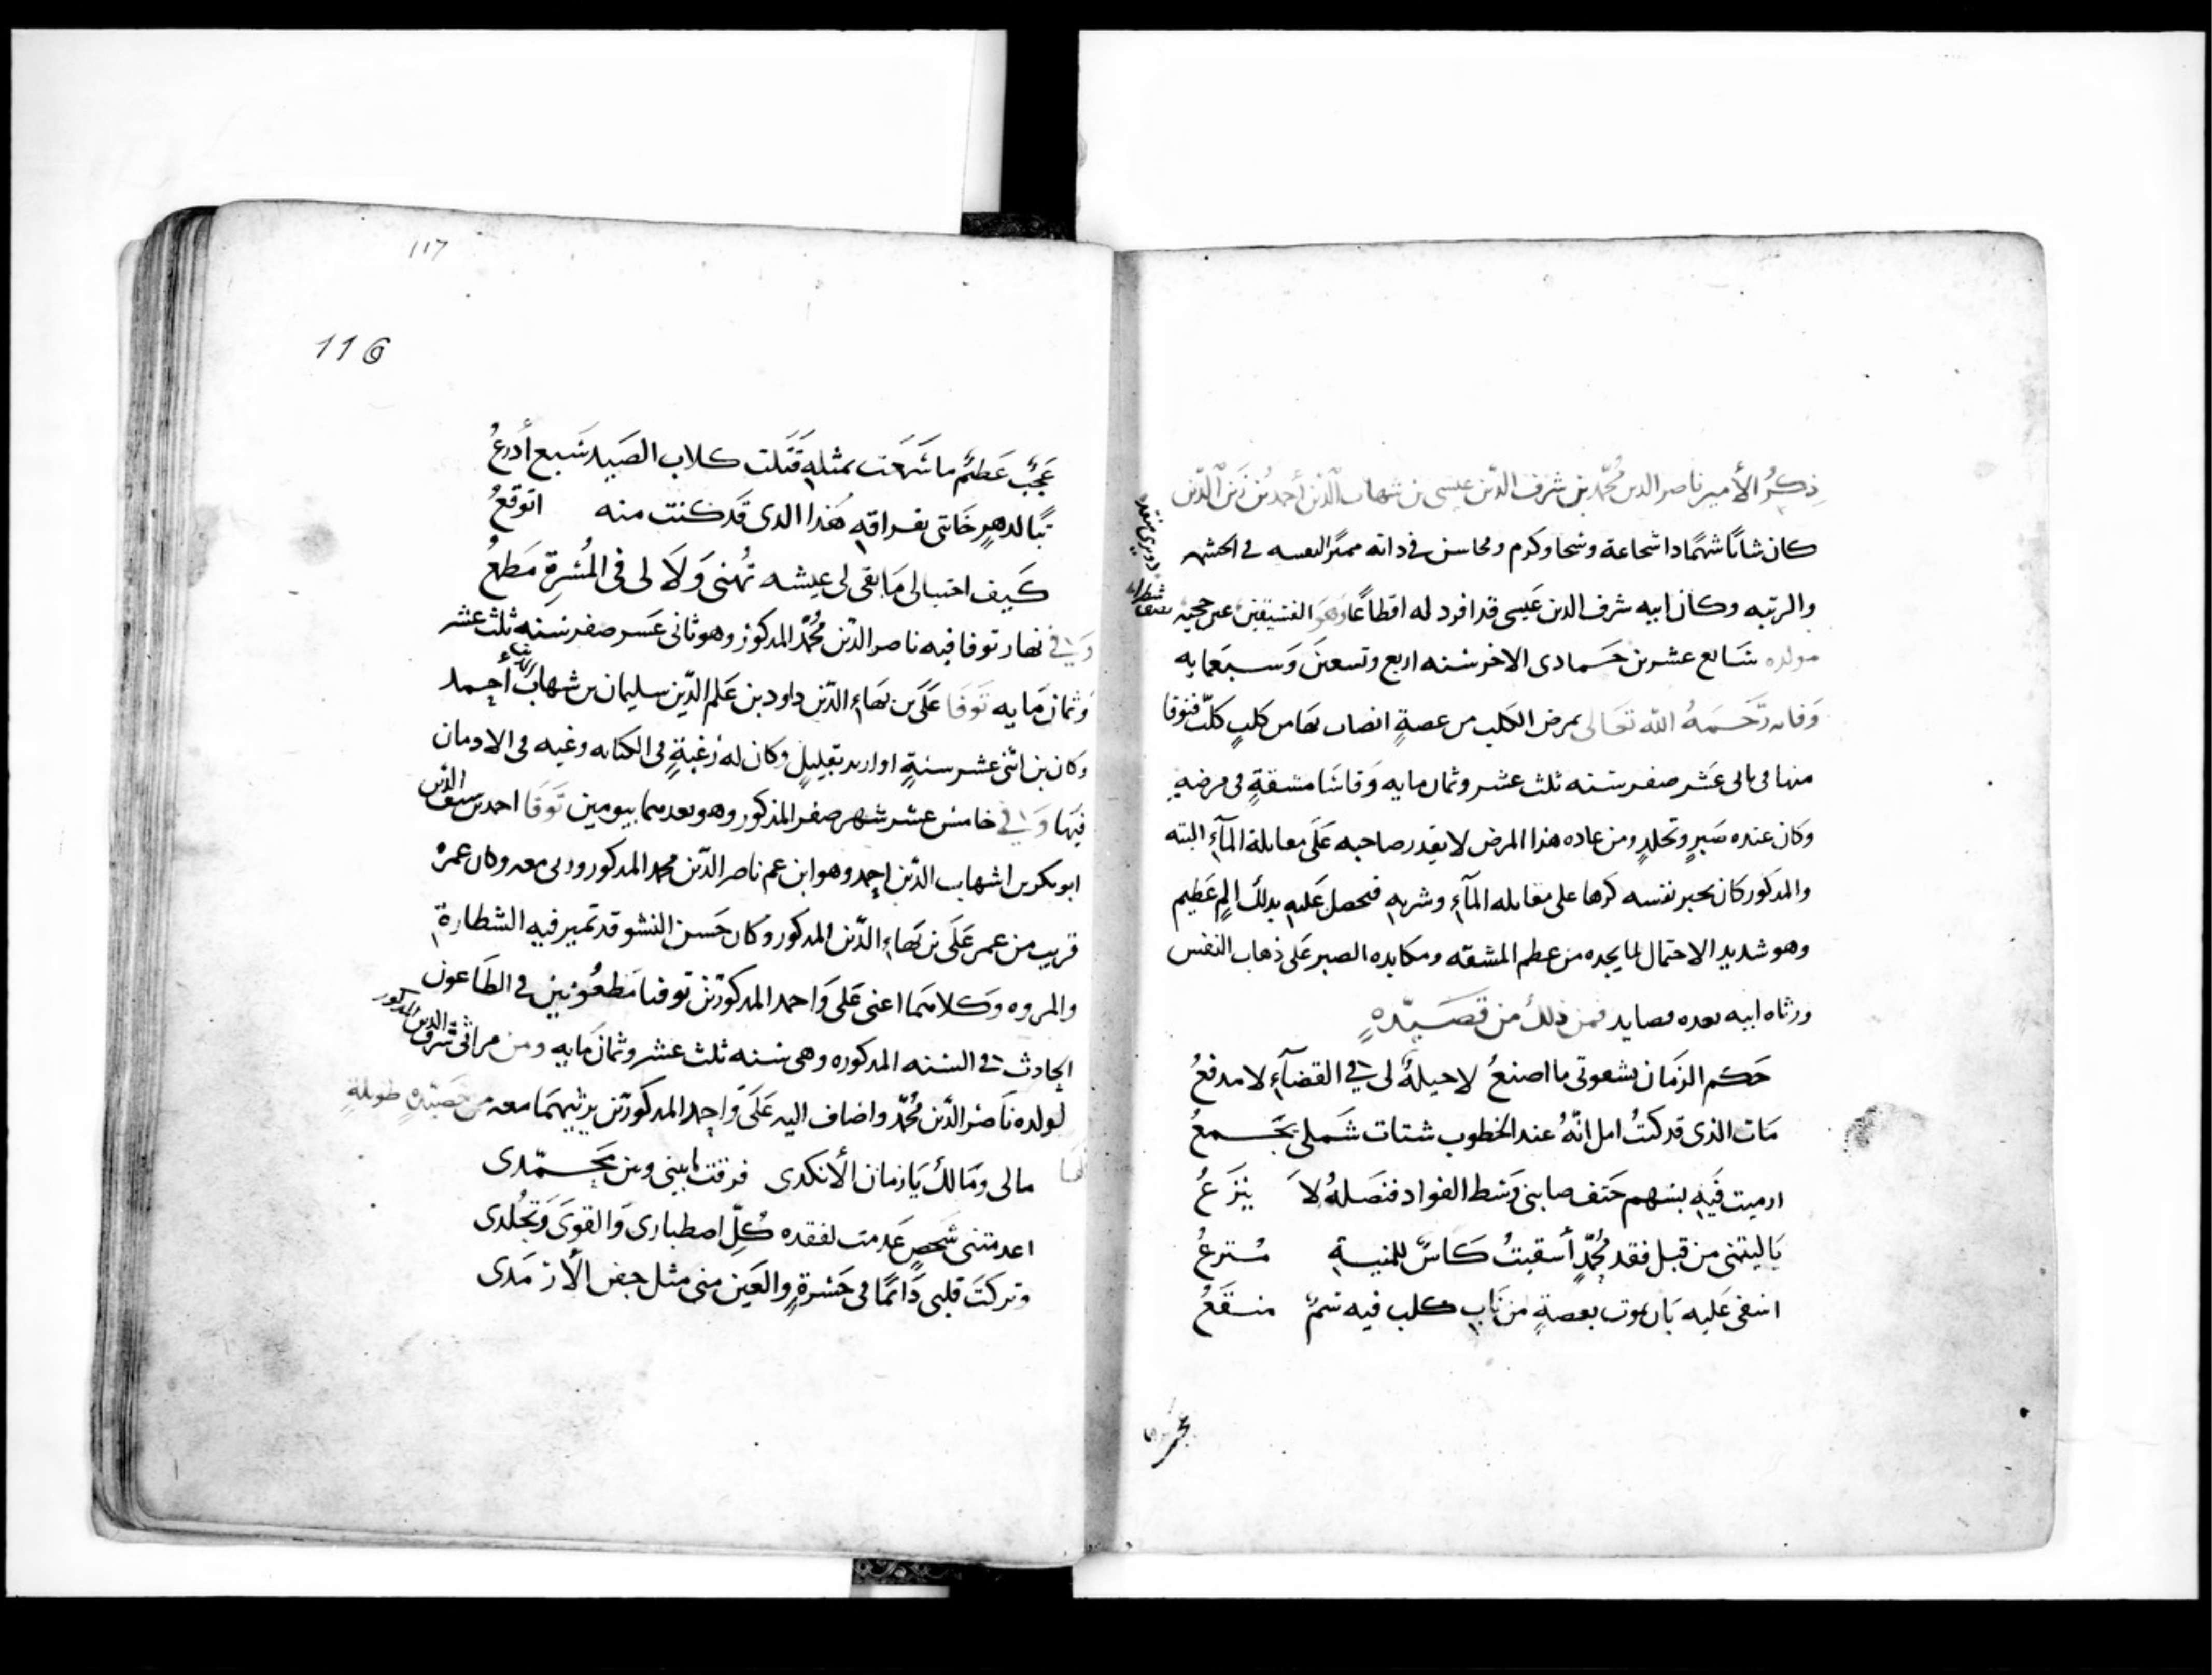 ذِكرُ الأمير ناصر الدين مُحمّد بن شرف الدّين عيسى بن شهاب الدّين أحمد بن زين الدّين
كان شابًا شهمًا ذا شجاعة وسخا وكرم ومحاسن في ذاته مميّز النفسه في الحشمه
والرتبه وكان ابيه شرف الدين عَيسى قد افرد له اقطاعًا وهَو
مولده سَابع عشرين جَمادى الاخر سنه اربع وتسعينَ وَسبَعمايه
وَفاته رَحَمَهُ الله تعَالى بمرض الكلَب من عضةٍ انصاب بها من كلبٍ كلبٍ فتوفا
منها في ثاني عَشر صفر سَنه ثلث عشر وثمان مايه وَقاسَا مشقةٍ في مرضهِ
وكان عنده صَبرٍ وتجلدٍ ومن عاده هذا المرض لا يقدر صاحبه عَلَى مقابلة المآءِ البته
والمذكور كان يجبر نفسه كرها على مقابله المآءِ وشربهِ فيحصل عَليهِ بذلك المٍ عَظيم
وهو شديد الاحتمال لما يجده من عظم المشقه ومكابده الصبر عَلى ذهاب النفس
ورثاه ابيه بعده بقصايد فمن ذلك من قصَيدهٍ
حَكم الزمَان بشقوتي ما اصنعُ لا حيلةٌ لي في القضآءِ لا مدفعُ
مَات الذى قد كنتُ امل انّهُ عند الخطوب شتات شَملى يَجمعُ
ارميت فيَه بسَهم حَتف صابنى وَسَط الفواد فنَصلهُ لا يَنزَعُ
يَا ليتنى من قبل فقد مُحمّدٍ أسقيتُ كَاسٌ للمنيةِ مُترعُ
اسَفى عَليه بَان يموت بعضةٍ من نَابِ كلب فيه سَمٌ منقَعُ
عَجَبٌ عَظيمٌ ما سَمعَت بمثلهِ قَتلت كلاب الصَيد سَبع أدرعُ
تبًا لدهرٍ خَانني بفراقهِ هَذا الذى قَد كنت منه اتوقعُ
كَيف احتيالى مَا بقى لى عيشه تُهنى وَلَا لى فى المُسَرةِ مَطمَعُ
وَفي نهار توفا فيه ناصر الدّين مُحمّد المذكور وهو ثانى عَشر صفر سنه ثلث عشر
وَثمان مَايه تَوفَا عَلَى بن بَهاءِ الدّين داود بن عَلَم الدّين سليمان بن شهاب الدين أحمد
وكان بن اثنى عشر سنةٍ او ازيد بقليلٍ وكان له رَغبةٍ في الكتابه وغيه في الادمان
فيَها وَفي خامس عشر شهر صفر المذكور وهو بعدهما بيومين تَوفَا احمد بن سيف الدّين
ابو بكر بن شهاب الدّين احمد وهو ابن عم ناصر الدّين محمد المذكور وربى معه وكان عمره
قريب من عمر عَلَى بن بَهاءِ الدّين المذكور وكان حَسن النشو قد تميز فيه الشطارة
والمروه وَكلاهَما اعنى عَلى وَاحمد المذكورَين توفيا مَطعُونين في الطَاعون
الحادث في السَنه المذكوره وهى سَنه ثلث عشر وثمان مَايه ومن مراثى شرف الدين المذكور
لولده نَاصر الدّين مُحمّد واضاف اليه عَلَى وَاحمد المذكورَين يرثيهمَا معه من قصَيدهٍ طويلةٍ
مالى ومَالك يَا زمان الأنكدى فرقت بَينى وبين مَحمّدى
اعدمتنى شَخصٍ عَدمت لفقده كُلّ اصطبارى وَالقوىَ وَتَجَلُدى
وتركتَ قلبى دَائمًا فى حَسرةٍ والعَين منى مثل جفن الأَرمَدى
117
116